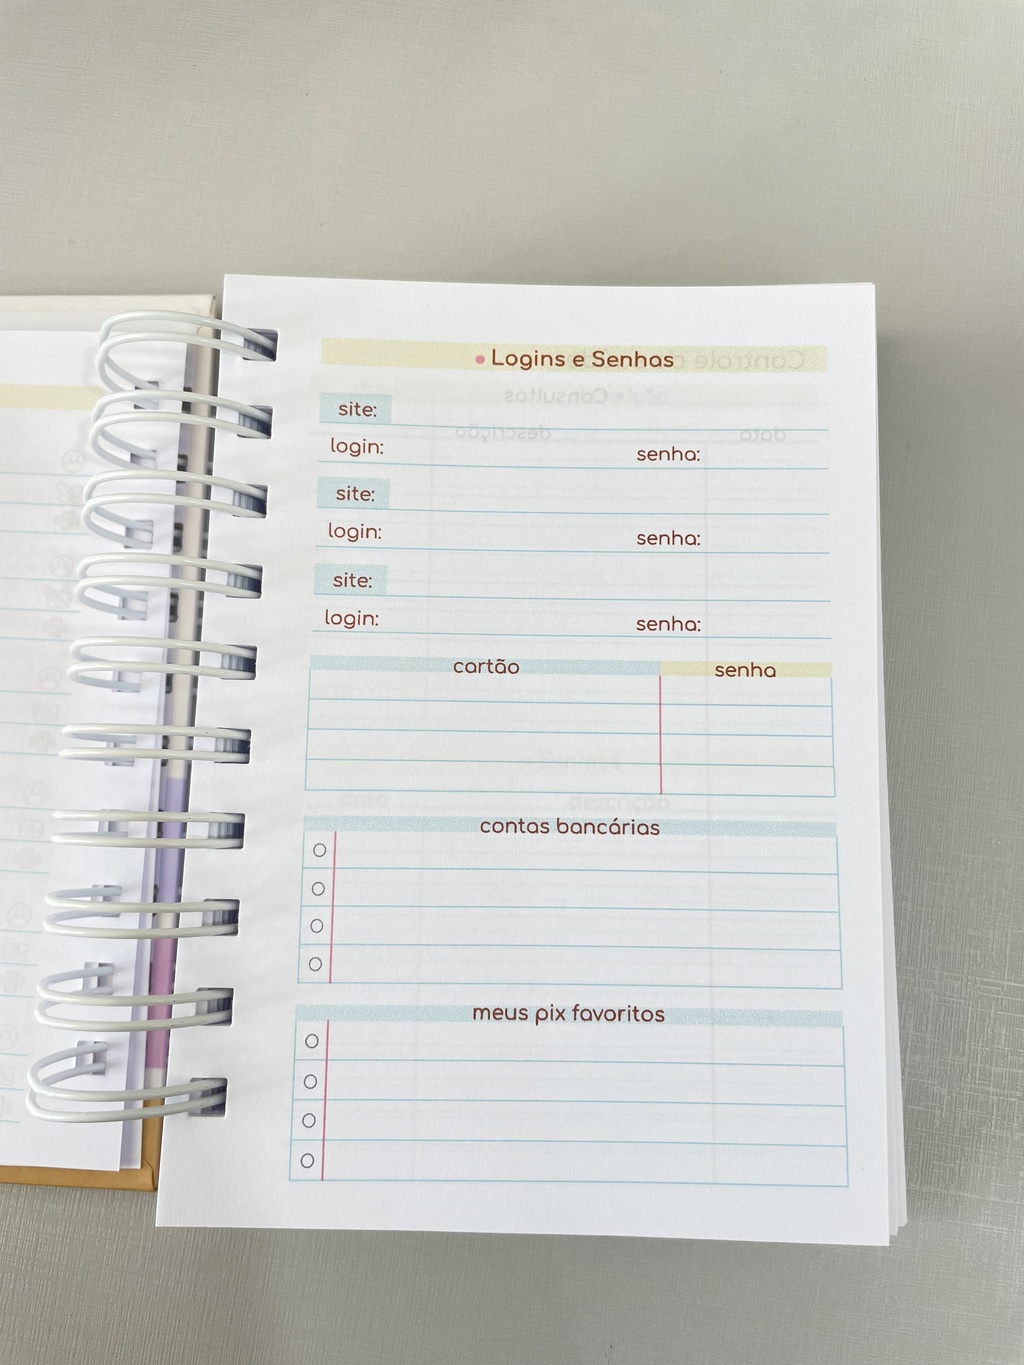 • Logins e Senhas
site:
login: senha:
site:
login: senha:
site:
login: senha:
cartão senha
contas bancárias
meus pix favoritos